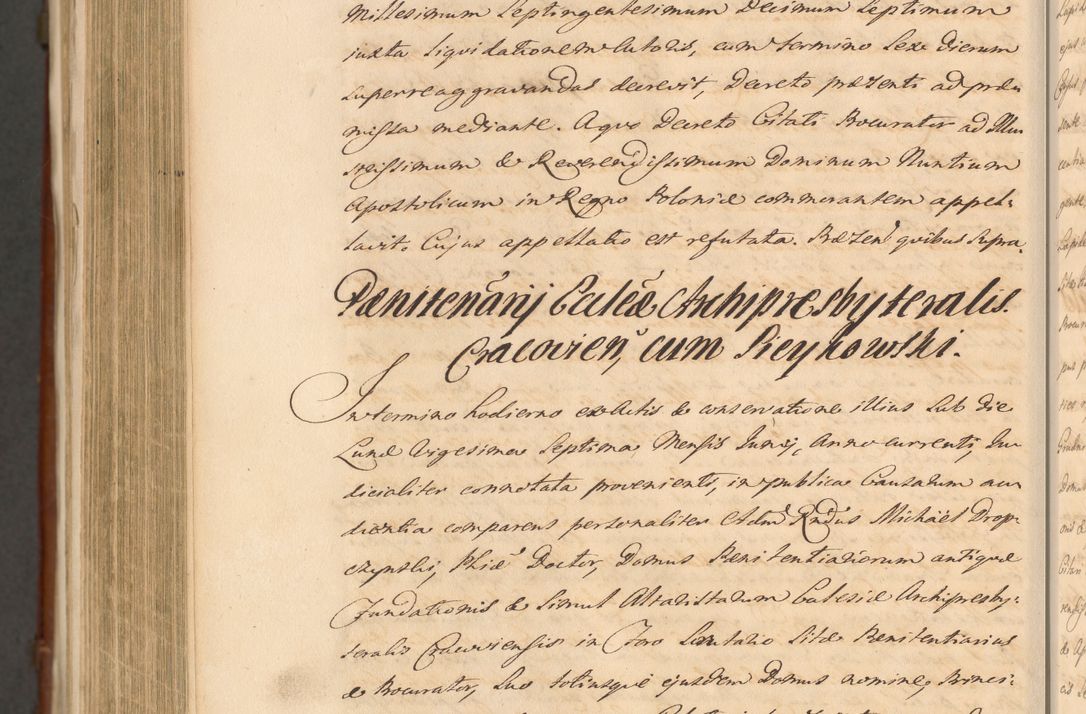 Millesimum Septingentesimum Decimum Septimum
iuxta Liquidationem Actoris, cum termino Sex Dierum
superreaggravandas decrevit, Decreto præsenti ad præ-
missa mediante. A quo Decreto Citati Procurator ad Illu-
strissimum & Reverendissimum Dominum Nuntium
Apostolicum in Regno Poloniæ commorantem appel-
lavit. Cujus appellatio est refutata. Præsen̄ quibus Supra.
Pænitenārij Eccleæ Archipresbyteralis
Cracovien̄, cum Pieykowski.
In termino hodierno ex Actis & conservatione illius Sub die
Lunæ Vigesima Septima, Mensis Junij, Anno currenti, Ju-
dicialiter connotata provenienti, in publica Causarum au-
dientia comparens personaliter Adm̄ Rndus Michaël Drop-
czynski, Phiæ Doctor, Domus Pænitentiariorum antiquæ
Fundationis & Simul Altaristarum Ecclesiæ Archipresby-
teralis Cracoviensis in Foro Sitæ Pænitentiarius
& Procurator, Suo totiusque ejusdem Domus nomine, Princi-